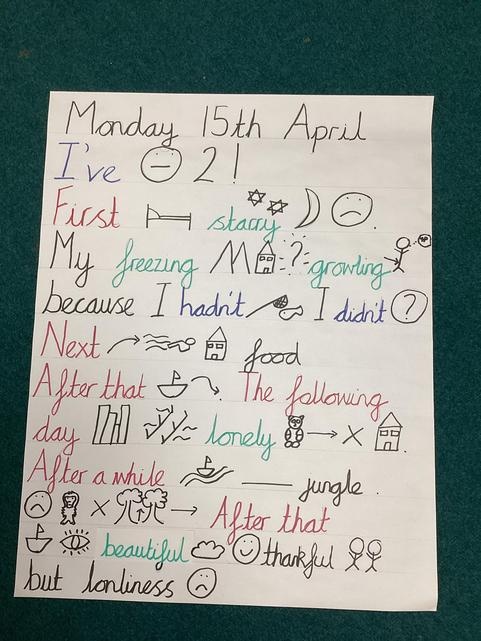 Monday 15th April
I've 2!
First starry
My freezing ? growling
because I hadn't I didn't ?
Next food
After that The following
day lonely
After a while jungle.
After that
beautiful thankful
but lonliness